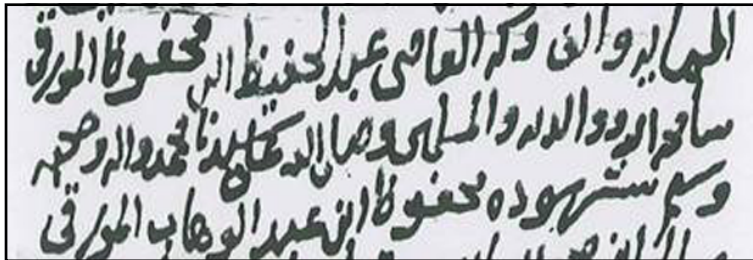 المايه والف وكه القاضى عبد الحفيظ ابن محفوظ المورقى
سامحه الله ووالديه والمسلمين وصلى الله على سيدنا محمد واله وصحبه
وسلم شهوده محفوظ ابن عبد الوهاب المورقى